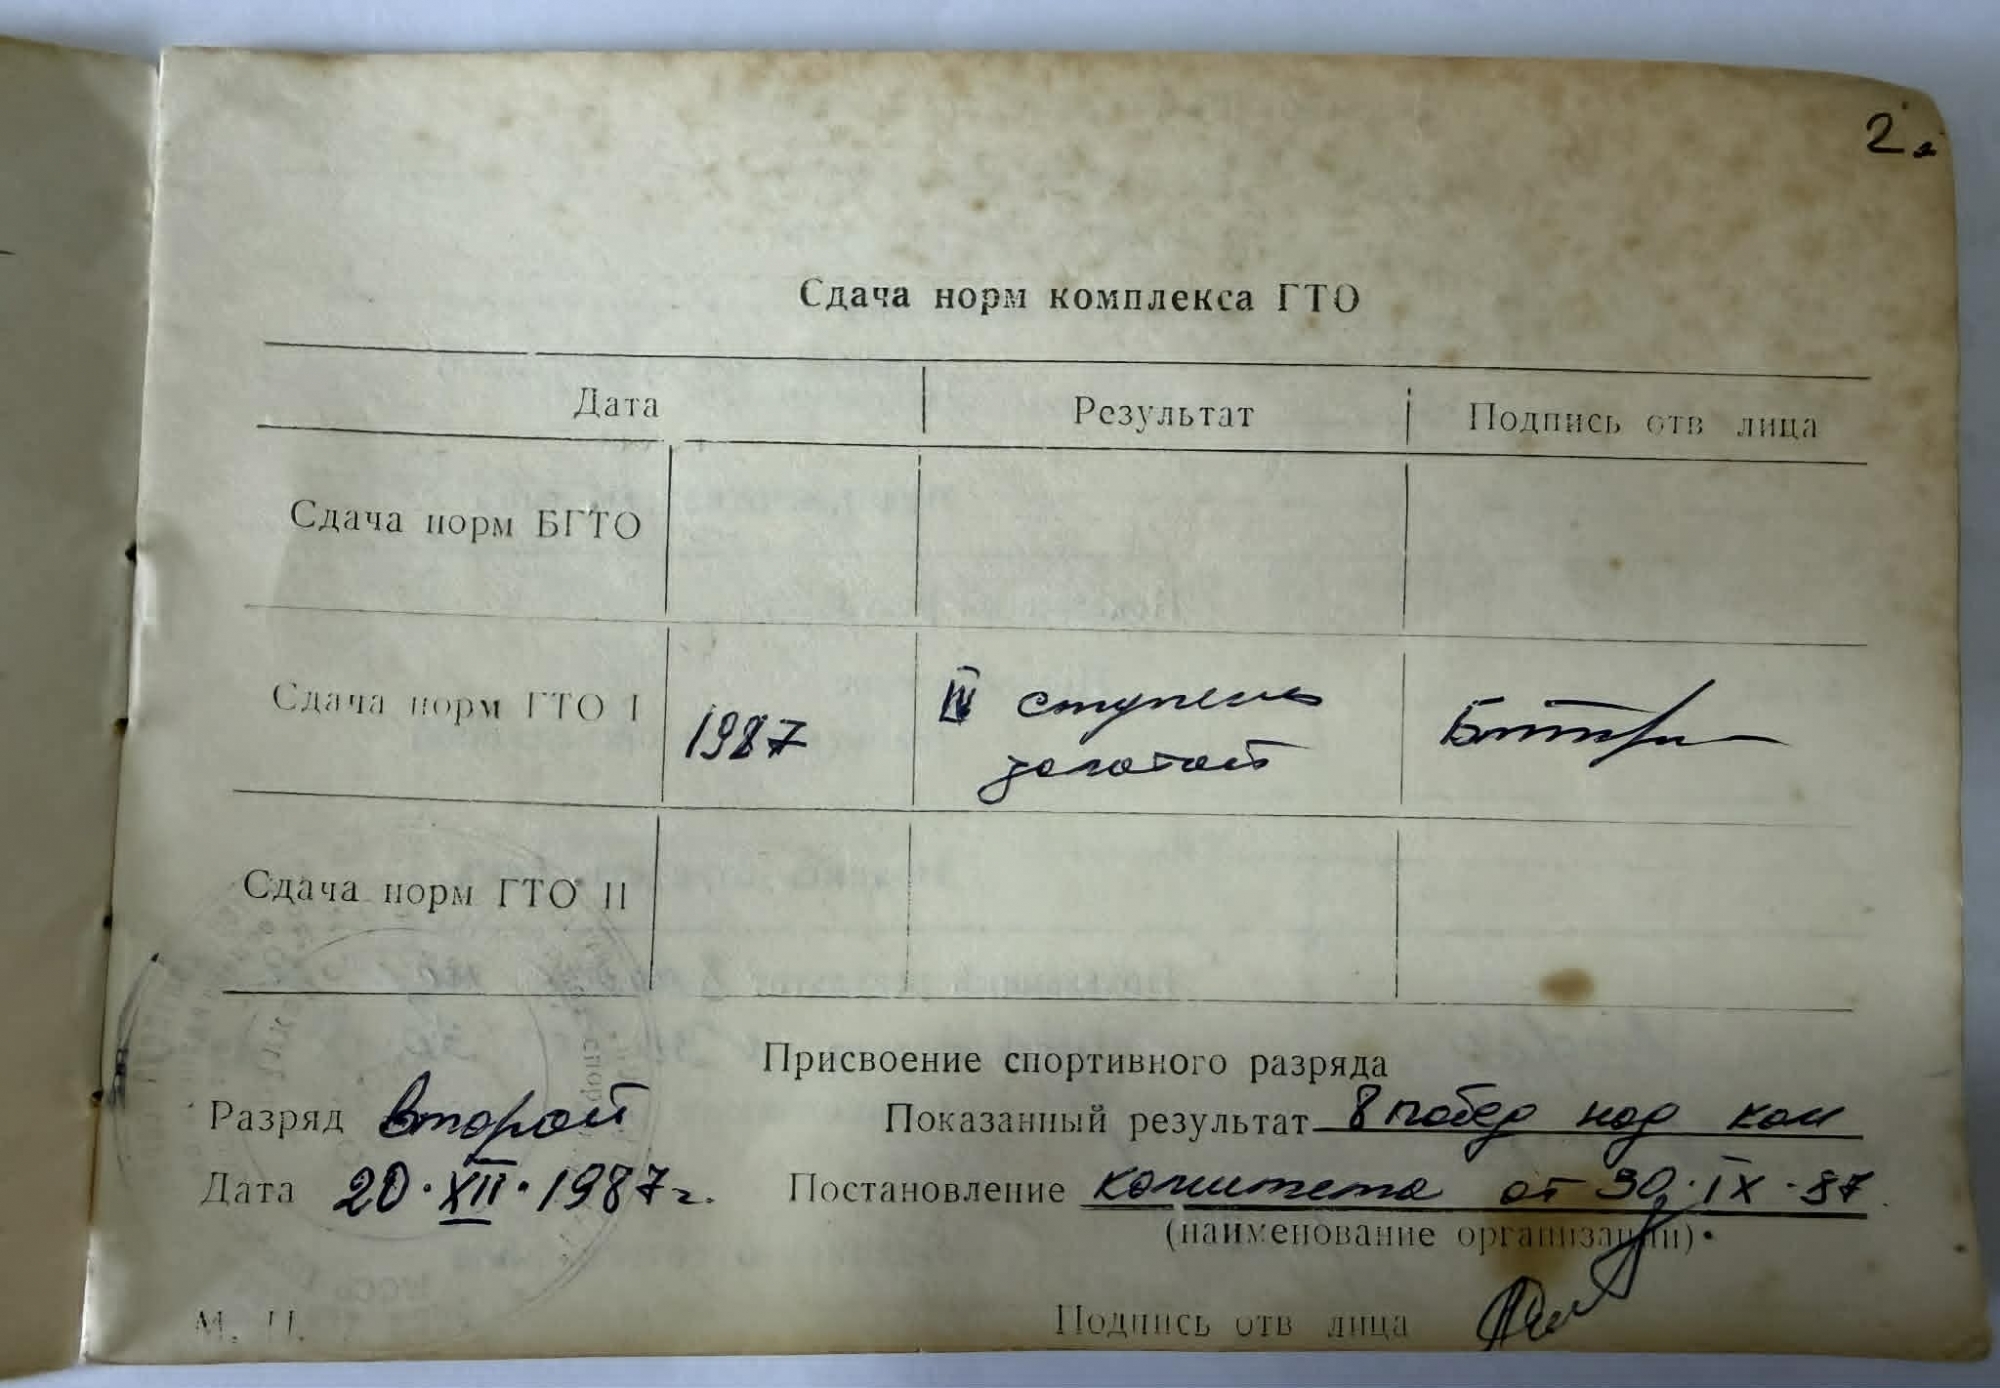 2.
Сдача норм комплекса ГТО
Дата Результат Подпись отв лица
Сдача норм БГТО
Сдача норм ГТО I 1987 IV ступень
золотой
Сдача норм ГТО II
Присвоение спортивного разряда
Разряд второй Показанный результат 8 побед над кмс
Дата 20·XII·1987г. Постановление комитета от 30·IX·87
(наименование организации)
М. П. Подпись отв лица